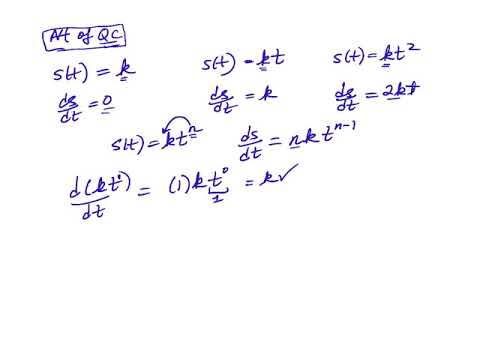 Art of QC
s(t) = k   s(t) = kt   s(t) = kt²
ds/dt = 0   ds/dt = k   ds/dt = 2kt
s(t) = ktⁿ   ds/dt = nktⁿ⁻¹
d(kt¹)/dt = (1)kt⁰ = k ✓
1